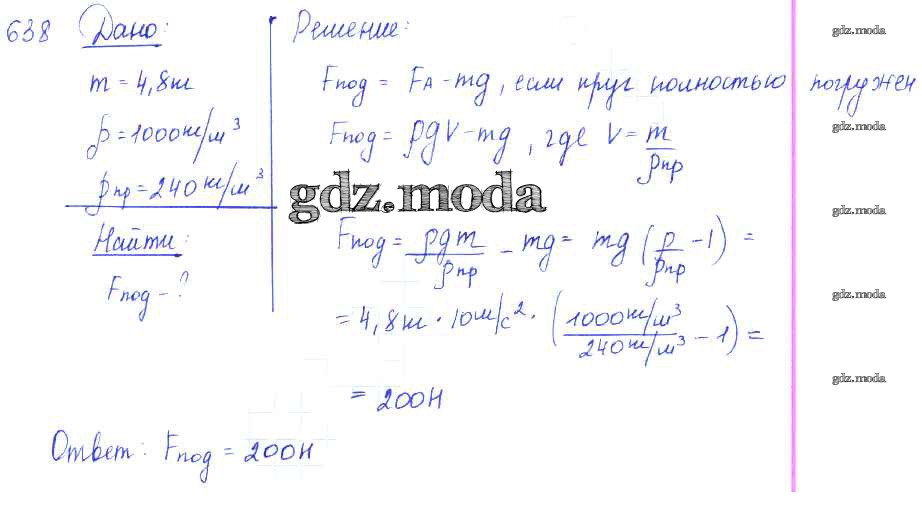 638 Дано:
m = 4,8 кг
ρ = 1000 кг/м³
ρпр = 240 кг/м³
Найти:
Fпод - ?
Решение:
Fпод = FА - mg, если круг полностью погружен
Fпод = ρgV - mg, где V = m/ρпр
Fпод = ρgm/ρпр - mg = mg (ρ/ρпр - 1) =
= 4,8 кг · 10 м/с² · (1000 кг/м³ / 240 кг/м³ - 1) =
= 200 Н
Ответ: Fпод = 200 Н
gdz.moda
gdz.moda
gdz.moda
gdz.moda
gdz.moda
gdz.moda